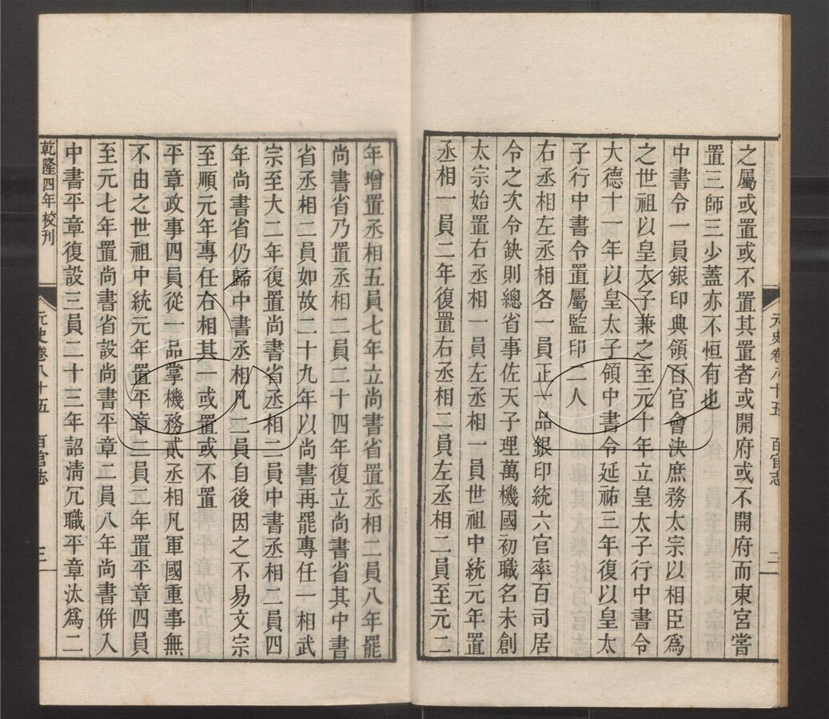 之屬或置或不置其置者或開府或不開府而東宮嘗
置三師三少蓋亦不恒有也
中書令一員銀印典領百官會決庶務太宗以相臣爲
之世祖以皇太子兼之至元十年立皇太子行中書令
大德十一年以皇太子領中書令延祐三年復以皇太
子行中書令置屬監印二人
右丞相左丞相各一員正一品銀印統六官率百司居
令之次令缺則總省事佐天子理萬機國初職名未創
太宗始置右丞相一員左丞相一員世祖中統元年置
丞相一員二年復置右丞相二員左丞相二員至元二
元史卷八十五 百官志 二
年增置丞相五員七年立尚書省置丞相三員八年罷
尚書省乃置丞相二員二十四年復立尚書省其中書
省丞相二員如故二十九年以尚書再罷專任一相武
宗至大二年復置尚書省丞相二員中書丞相二員四
年尚書省仍歸中書丞相凡二員自後因之不易文宗
至順元年專任右相其一或置或不置
平章政事四員從一品掌機務貳丞相凡軍國重事無
不由之世祖中統元年置平章二員二年置平章四員
至元七年置尚書省設尚書平章二員八年尚書併入
中書平章復設三員二十三年詔清冗職平章汰爲二
乾隆四年校刊 元史卷八十五 百官志 三